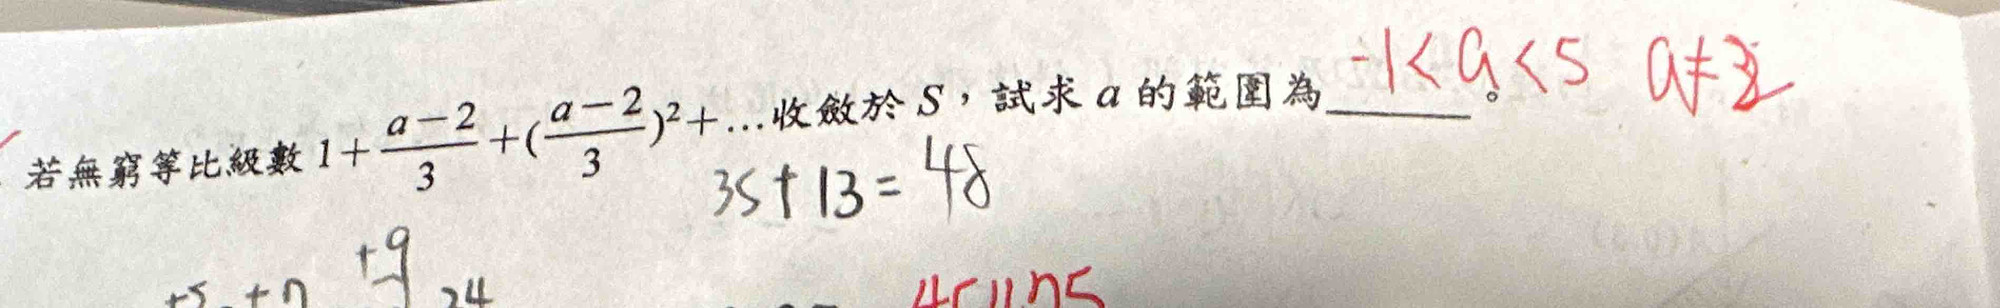 -1 < a < 5 a ≠ 2
若無窮等比級數 1 + \frac{a-2}{3} + (\frac{a-2}{3})^2 + … 收斂於 S,試求 a 的範圍為______。
35 + 13 = 48
+9
24